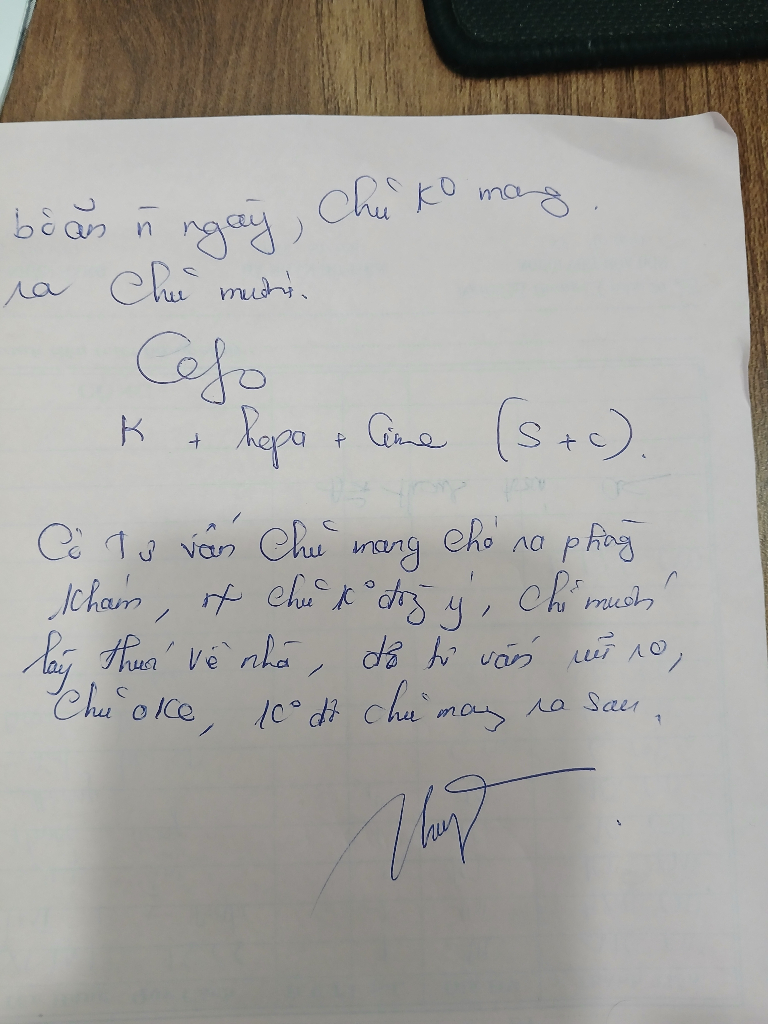 bỏ ăn n ngày, Chủ K° mang.
ra Chủ muốn.
Cefo
K + hepa + Cime (S + C).
Có Tư vấn Chủ mang chó ra phòng
Khám, nx chủ K° đồng ý, chỉ muốn
lấy thuốc về nhà, đã tư vấn rủi ro,
Chủ oke, K° đt chủ mang ra sau.